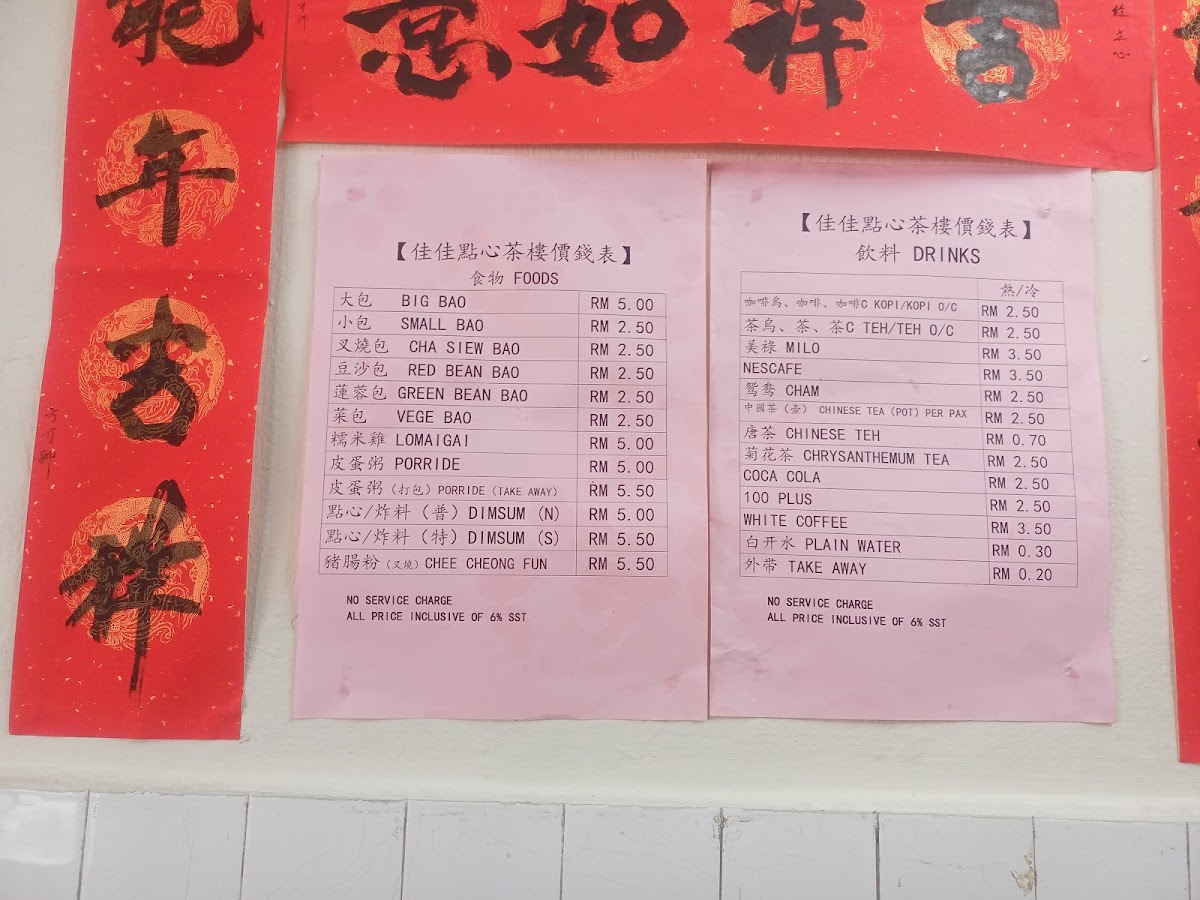 意如祥吉
年
吉
祥
【佳佳點心茶樓價錢表】
食物 FOODS
大包 BIG BAO RM 5.00
小包 SMALL BAO RM 2.50
叉燒包 CHA SIEW BAO RM 2.50
豆沙包 RED BEAN BAO RM 2.50
蓮蓉包 GREEN BEAN BAO RM 2.50
菜包 VEGE BAO RM 2.50
糯米雞 LOMAIGAI RM 5.00
皮蛋粥 PORRIDE RM 5.00
皮蛋粥 (打包) PORRIDE (TAKE AWAY) RM 5.50
點心/炸料 (普) DIMSUM (N) RM 5.00
點心/炸料 (特) DIMSUM (S) RM 5.50
豬腸粉 (叉燒) CHEE CHEONG FUN RM 5.50
NO SERVICE CHARGE
ALL PRICE INCLUSIVE OF 6% SST
【佳佳點心茶樓價錢表】
飲料 DRINKS
熱/冷
咖啡烏、咖啡、咖啡C KOPI/KOPI O/C RM 2.50
茶烏、茶、茶C TEH/TEH O/C RM 2.50
美祿 MILO RM 3.50
NESCAFE RM 3.50
鴛鴦 CHAM RM 2.50
中國茶 (壺) CHINESE TEA (POT) PER PAX RM 2.50
唐茶 CHINESE TEH RM 0.70
菊花茶 CHRYSANTHEMUM TEA RM 2.50
COCA COLA RM 2.50
100 PLUS RM 2.50
WHITE COFFEE RM 3.50
白开水 PLAIN WATER RM 0.30
外帶 TAKE AWAY RM 0.20
NO SERVICE CHARGE
ALL PRICE INCLUSIVE OF 6% SST